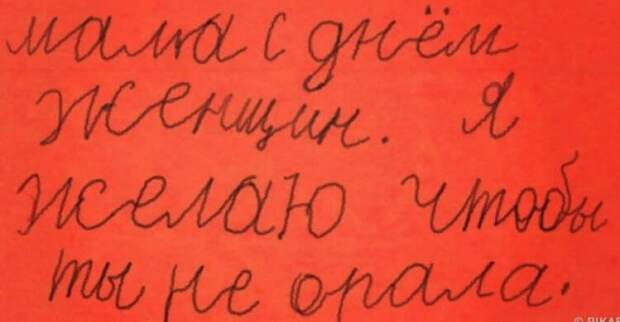 мама с днём
женщин. я
желаю чтобы
ты не орала.